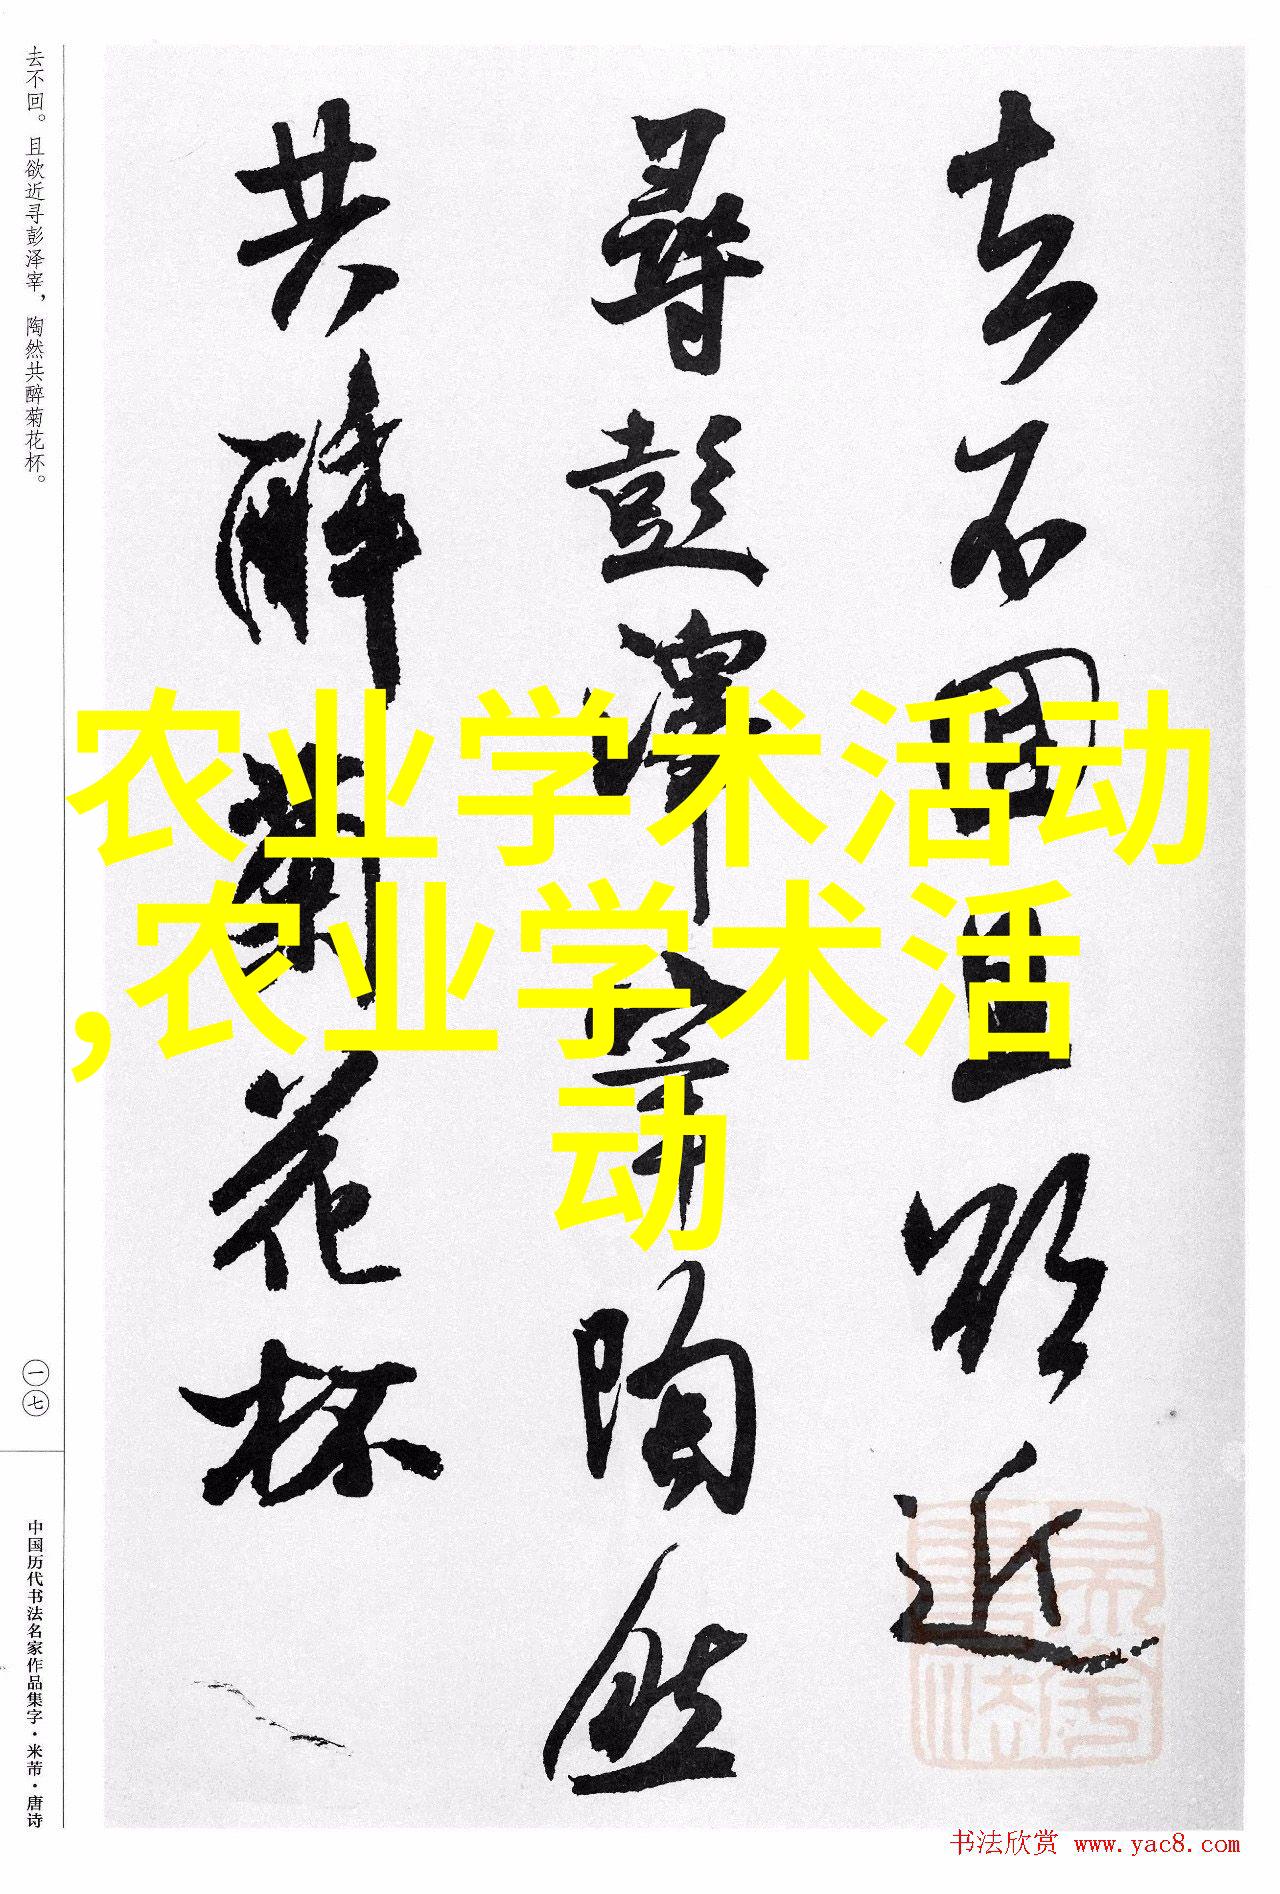 去不回且欲近
尋彭澤宰陶然
共醉菊花杯
农业学术活动
,农业学术活
动
去不回。且欲近寻彭泽宰，陶然共醉菊花杯。
一七
中国历代书法名家作品集字·米芾·唐诗
书法欣赏 www.yac8.com